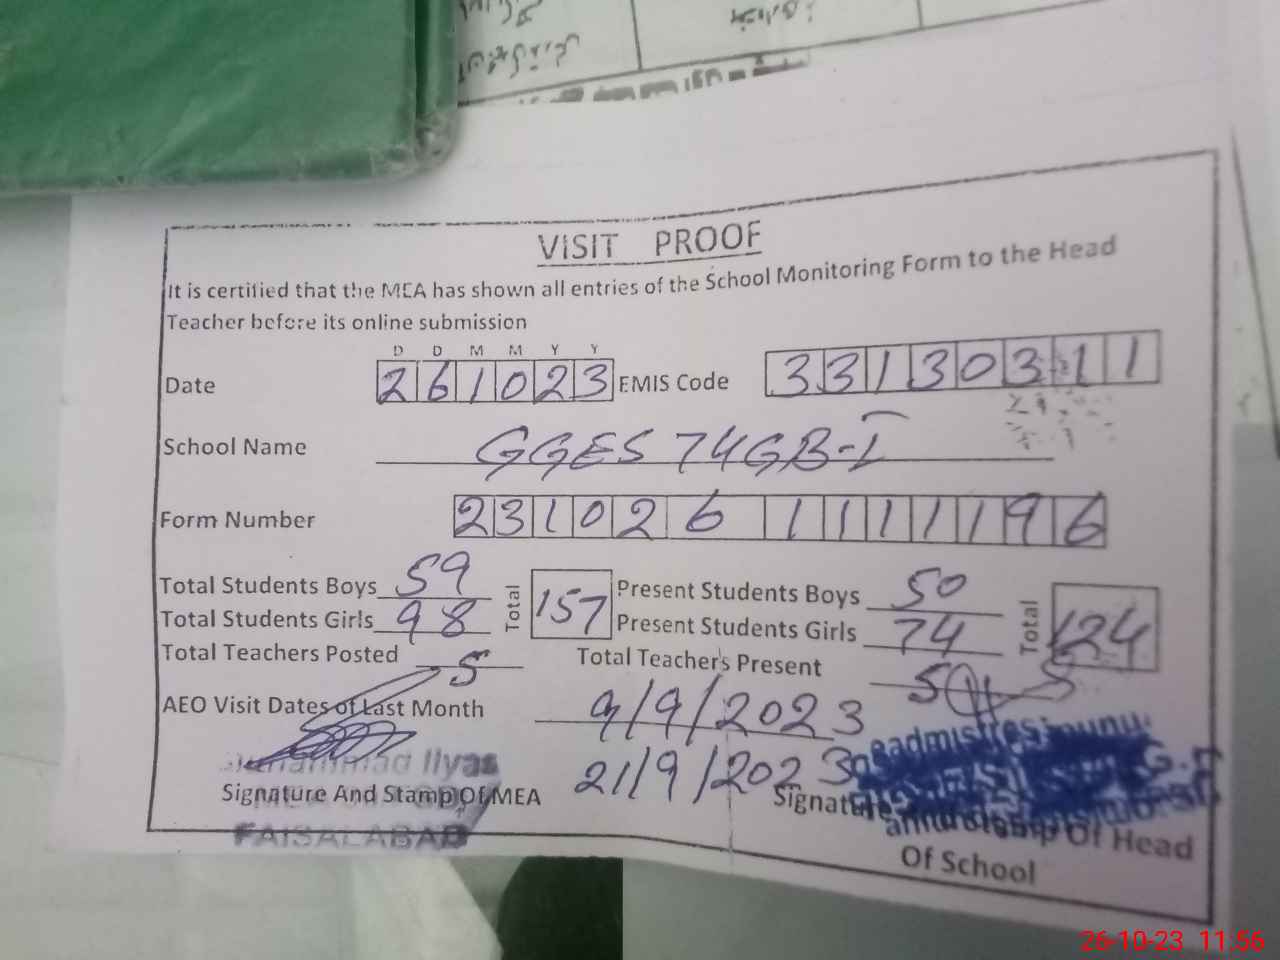 VISIT PROOF
It is certified that the MEA has shown all entries of the School Monitoring Form to the Head
Teacher before its online submission
D D M M Y Y
Date 261023 EMIS Code 33130311
School Name GGES 74GB-I
Form Number 2310261111196
Total Students Boys 59 Total 157 Present Students Boys 50 Total 124
Total Students Girls 98 Present Students Girls 74
Total Teachers Posted 5 Total Teachers Present 5
AEO Visit Dates of Last Month 9/9/2023
21/9/2023
Ilyas
Signature And Stamp Of MEA
FAISALABAD
Signature And Stamp Of Head
Of School
26-10-23 11:56